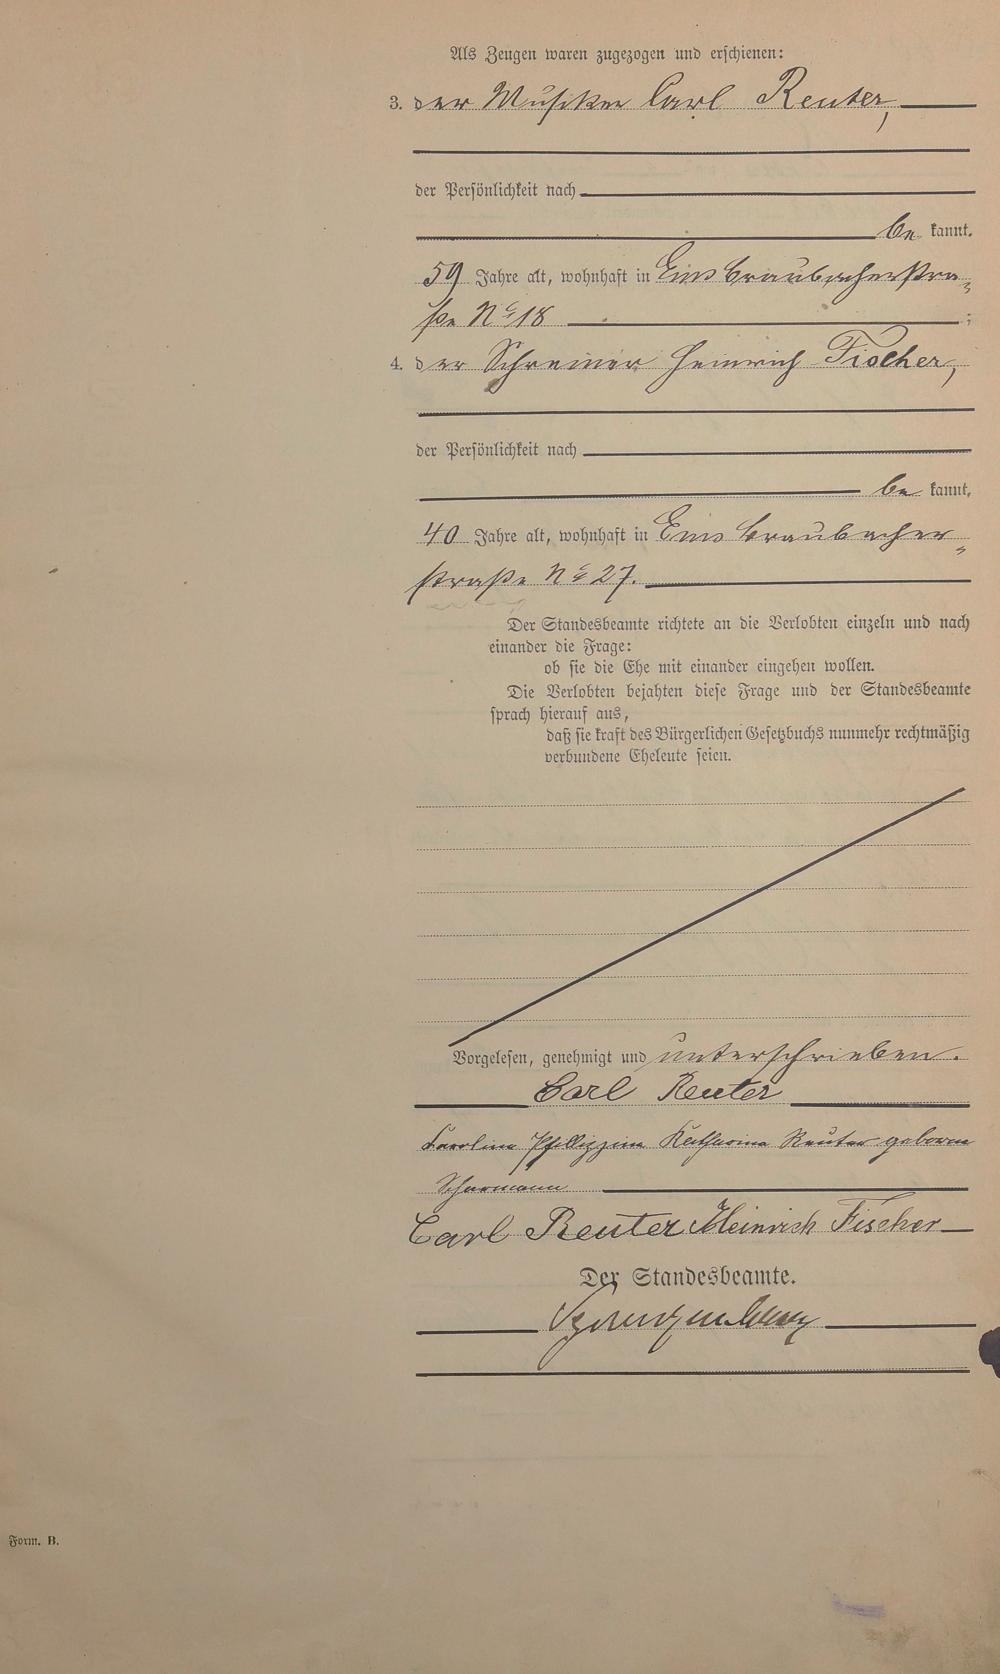 Als Zeugen waren zugezogen und erschienen:
3. der Musiker Carl Reuter,
der Persönlichkeit nach
be kannt.
59 Jahre alt, wohnhaft in Ems Braubacherstra„
ße No 18 ;
4. der Schreiner Heinrich Fischer,
der Persönlichkeit nach
be kannt,
40 Jahre alt, wohnhaft in Ems Braubacher„
straße No 27.
Der Standesbeamte richtete an die Verlobten einzeln und nach
einander die Frage:
ob sie die Ehe mit einander eingehen wollen.
Die Verlobten bejahten diese Frage und der Standesbeamte
sprach hierauf aus,
daß sie kraft des Bürgerlichen Gesetzbuchs nunmehr rechtmäßig
verbundene Eheleute seien.
Vorgelesen, genehmigt und unterschrieben.
Carl Reuter
Karolina Katharina Reuter geborene
Carl Reuter Heinrich Fischer
Der Standesbeamte.
Form. B.